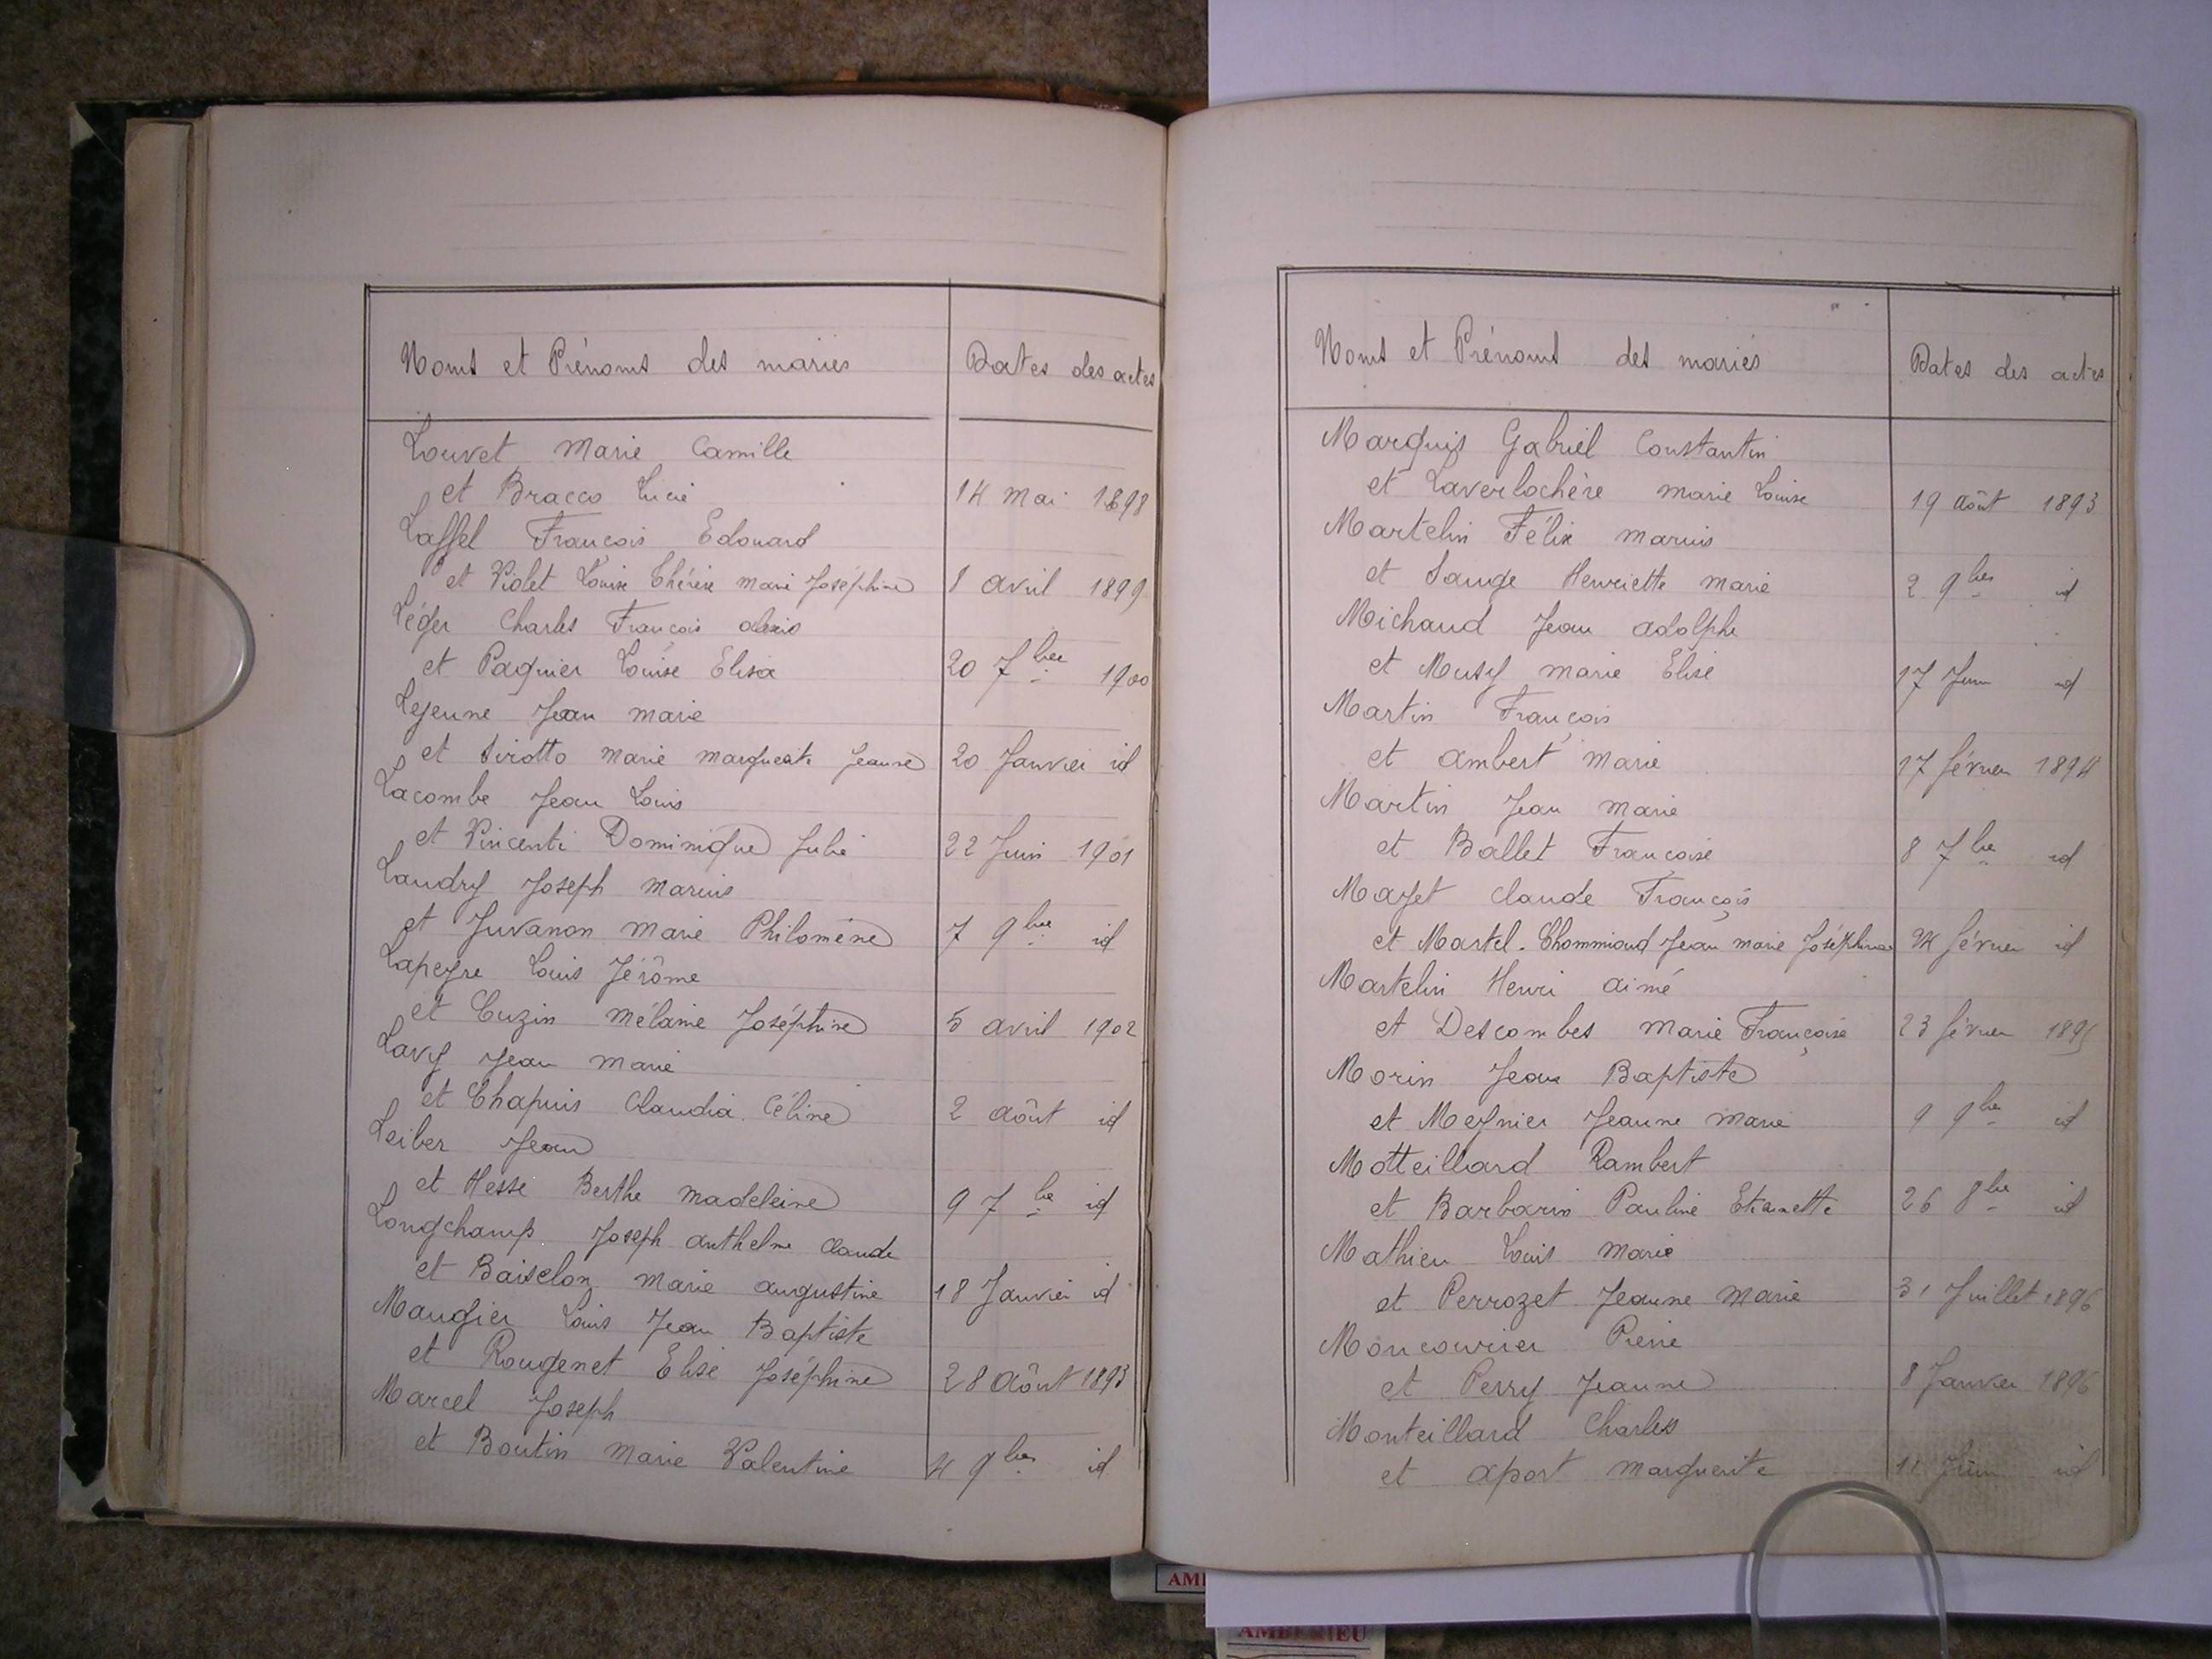 Noms et Prénoms des mariés Dates des actes
Louvet Marie Camille
et Bracco Lucie 14 mai 1898
Laffel François Edouard
et Violet Louise Thérèse marie Joséphine 8 avril 1899
Léger Charles François alexis
et Paquier Louise Elisa 20 7bre 1900
Lejeune Jean marie
et Sirotto marie marguerite Jeanne 20 Janvier id
Lacombe Jean Louis
et Vincenti Dominique Julie 22 Juin 1901
Landry Joseph marius
et Juvanon marie Philomène 7 9bre id
Lapeyre Louis Jérôme
et Cuzin mélanie Joséphine 5 avril 1902
Lavy Jean marie
et Chapuis Claudia Céline 2 aôut id
Leiber Jean
et Hesse Berthe madeleine 9 7bre id
Longchamp Joseph anthelme claude
et Baiselon marie augustine 18 Janvier id
Maugier Louis Jean Baptiste
et Rougenet Elise Joséphine 28 aôut 1893
Marcel Joseph
et Boutin Marie Valentine 4 9bre id
Noms et Prénoms des mariés Dates des actes
Marquis Gabriel Constantin
et Laverlochère marie Louise 19 aôut 1893
Martelin Félix marius
et Sauge Henriette marie 2 9bre id
Michaud Jean adolphe
et Musy marie Elise 17 Juin id
Martin François
et ambert marie 17 février 1894
Martin Jean marie
et Ballet Françoise 8 7bre id
Mazet claude François
et Martel-Chommiaud Jean marie Joséphine 24 février id
Martelin Henri aimé
et Descombes marie Françoise 23 février 1895
Morin Jean Baptiste
et Meynier Jeanne marie 9 9bre id
Motteillard Rambert
et Barbarin Pauline Etiennette 26 8bre id
Mathieu Louis marie
et Perrozet Jeanne marie 31 Juillet 1896
Moncourrier Pierre
et Perry Jeanne 8 Janvier 1896
Monteillard Charles
et aport marguerite 11 Juin id
AMBERIEU